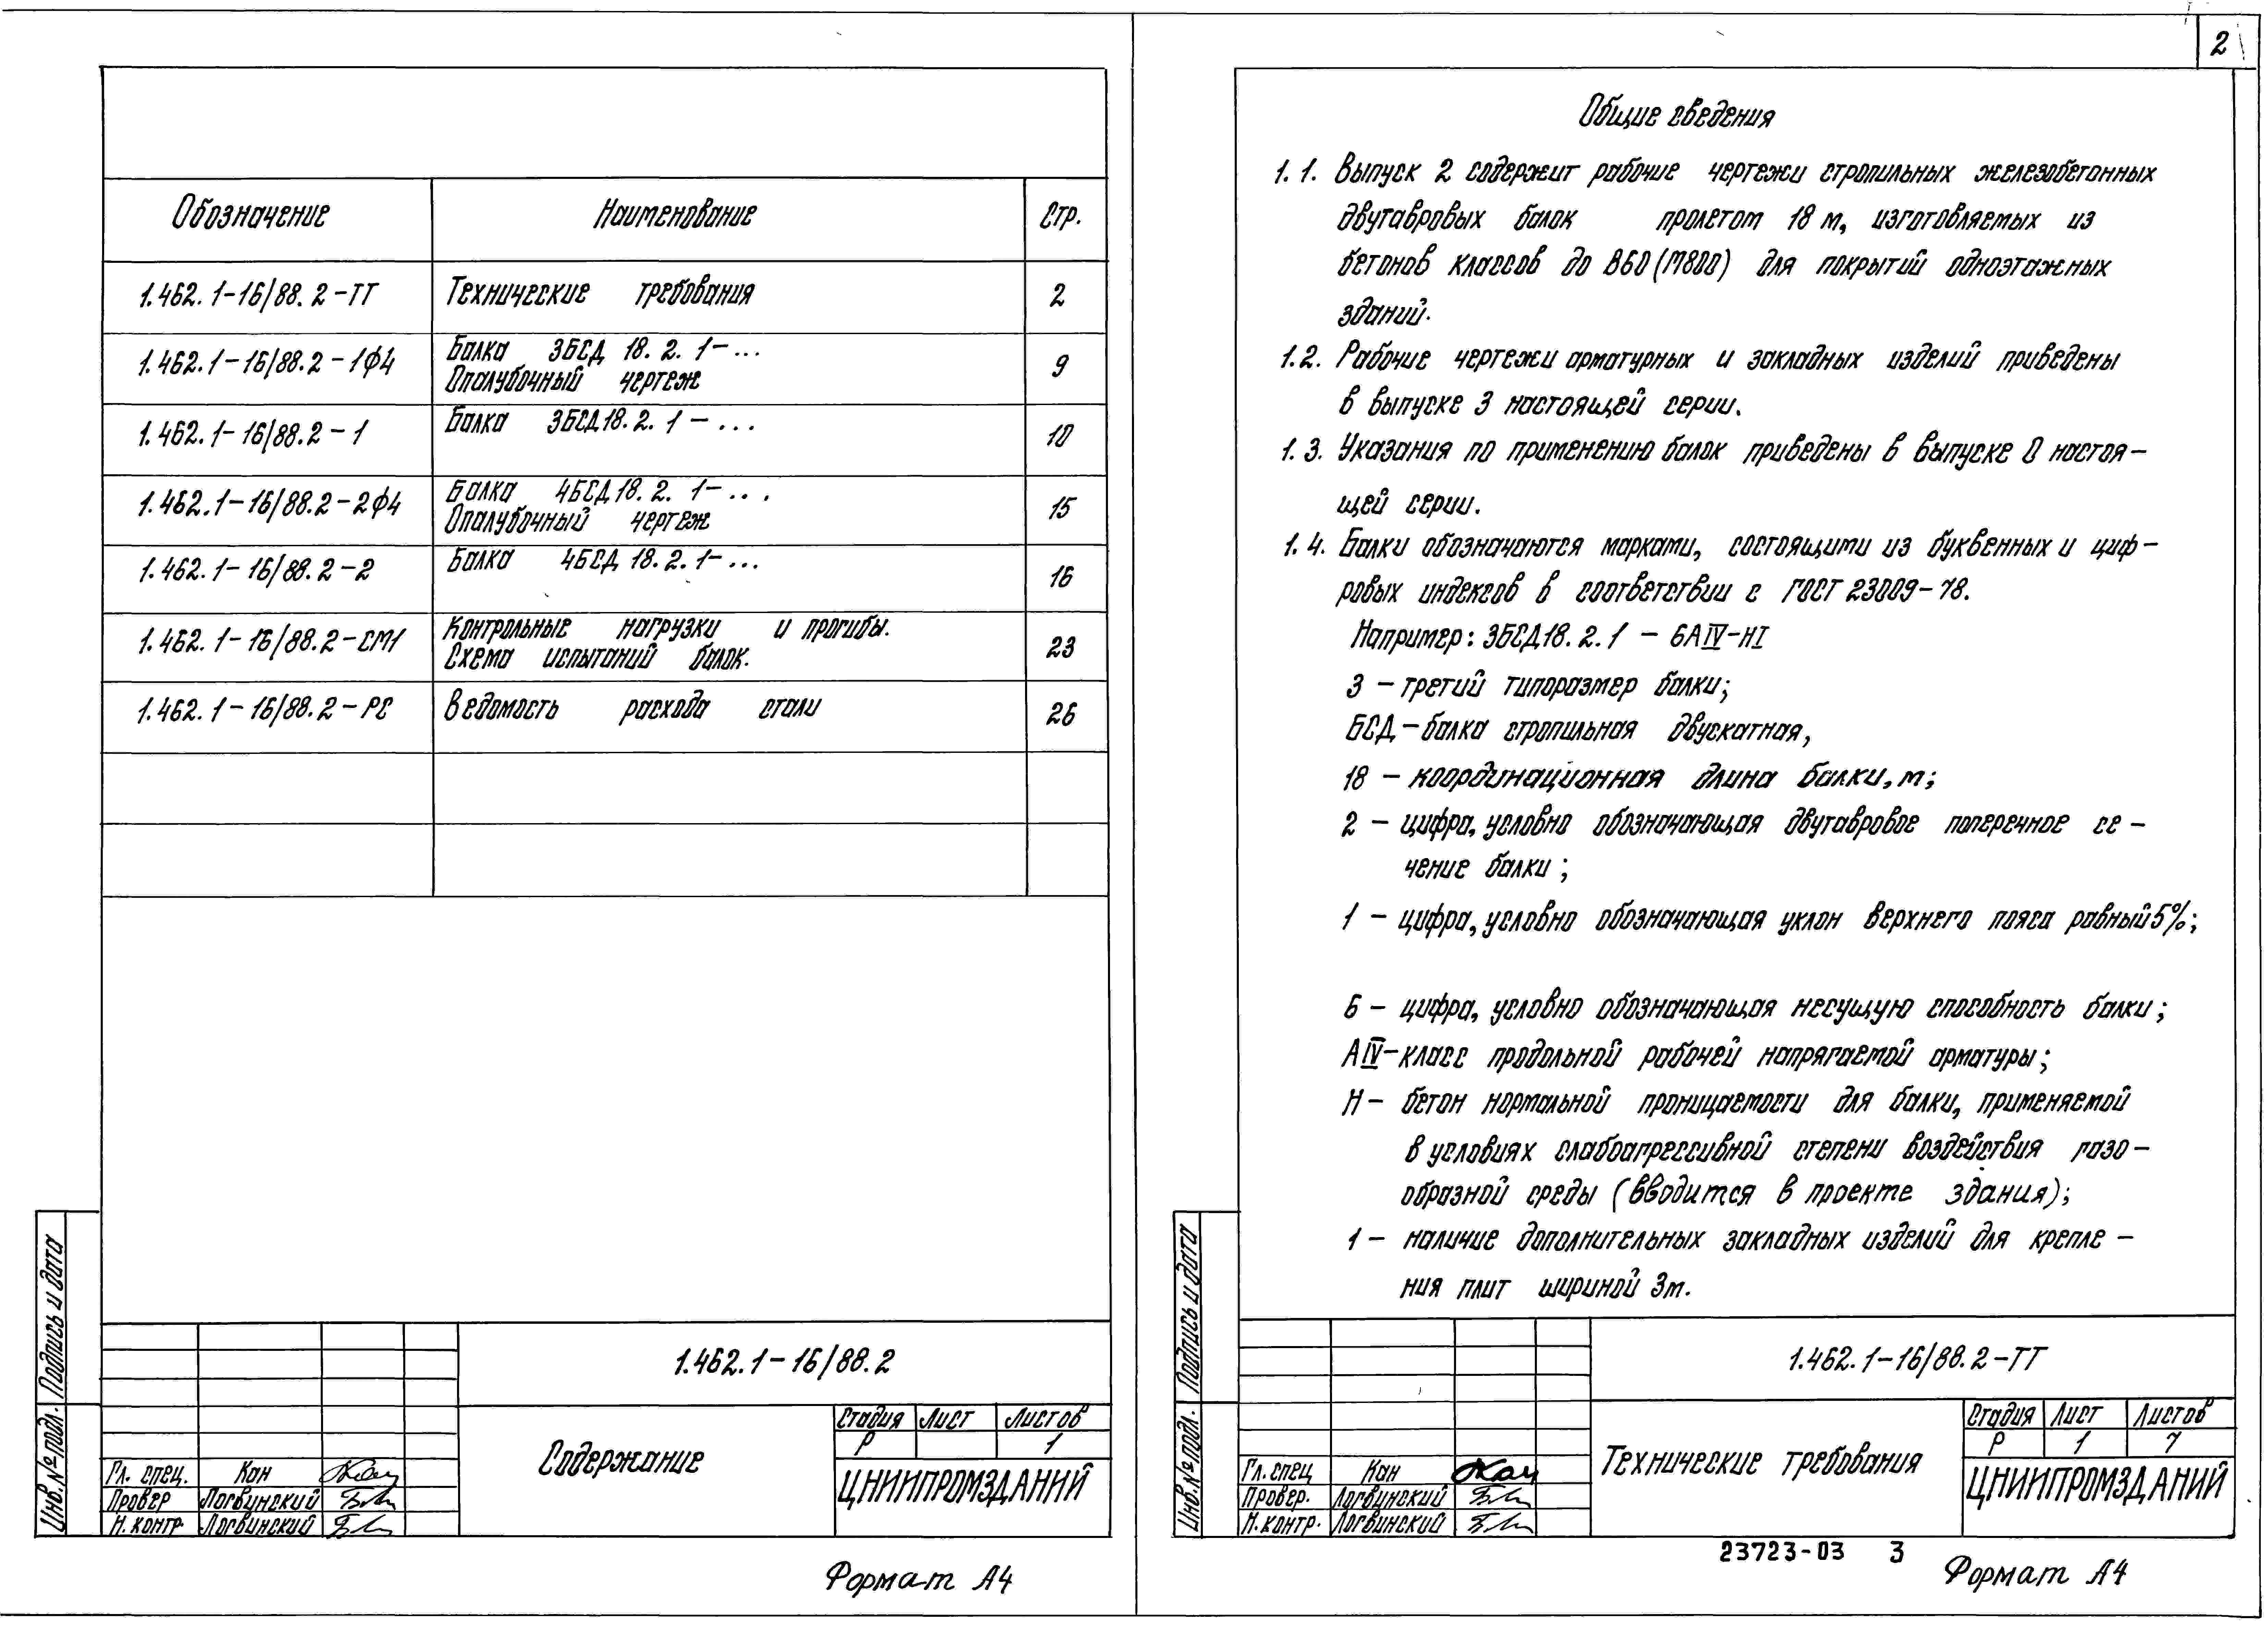 Обозначение
Наименование
Стр.
1.462.1-16/88.2-ТТ
Технические требования
2
1.462.1-16/88.2-1ф4
Балка 3БСД 18.2.1-...
Опалубочный чертеж
9
1.462.1-16/88.2-1
Балка 3БСД18.2.1-...
10
1.462.1-16/88.2-2ф4
Балка 4БСД18.2.1-...
Опалубочный чертеж
15
1.462.1-16/88.2-2
Балка 4БСД 18.2.1-...
16
1.462.1-16/88.2-СМ1
Контрольные нагрузки и прогибы.
Схема испытаний балок.
23
1.462.1-16/88.2-РС
Ведомость расхода стали
26
Подпись и дата
Инв.№ подл.
1.462.1-16/88.2
Содержание
Стадия Лист Листов
Р 1
ЦНИИПРОМЗДАНИЙ
Гл. спец. Кан
Провер Логвинский
Н. контр. Логвинский
Формат А4
2
Общие сведения
1.1. Выпуск 2 содержит рабочие чертежи стропильных железобетонных
двутавровых балок пролетом 18 м, изготовляемых из
бетонов классов до В60 (М800) для покрытий одноэтажных
зданий.
1.2. Рабочие чертежи арматурных и закладных изделий приведены
в выпуске 3 настоящей серии.
1.3. Указания по применению балок приведены в выпуске 0 настоя-
щей серии.
1.4. Балки обозначаются марками, состоящими из буквенных и циф-
ровых индексов в соответствии с ГОСТ 23009-78.
Например: 3БСД18.2.1 - 6АIV-НI
3 - третий типоразмер балки;
БСД - балка стропильная двускатная,
18 - координационная длина балки, м;
2 - цифра, условно обозначающая двутавровое поперечное се-
чение балки;
1 - цифра, условно обозначающая уклон верхнего пояса равный 5%;
6 - цифра, условно обозначающая несущую способность балки;
АIV - класс продольной рабочей напрягаемой арматуры;
Н - бетон нормальной проницаемости для балки, применяемой
в условиях слабоагрессивной степени воздействия газо-
образной среды (вводится в проекте здания);
1 - наличие дополнительных закладных изделий для крепле-
ния плит шириной 3м.
Подпись и дата
Инв.№ подл.
1.462.1-16/88.2-ТТ
Технические требования
Стадия Лист Листов
Р 1 7
ЦНИИПРОМЗДАНИЙ
Гл. спец Кан
Провер. Логвинский
Н. контр. Логвинский
23723-03 3
Формат А4